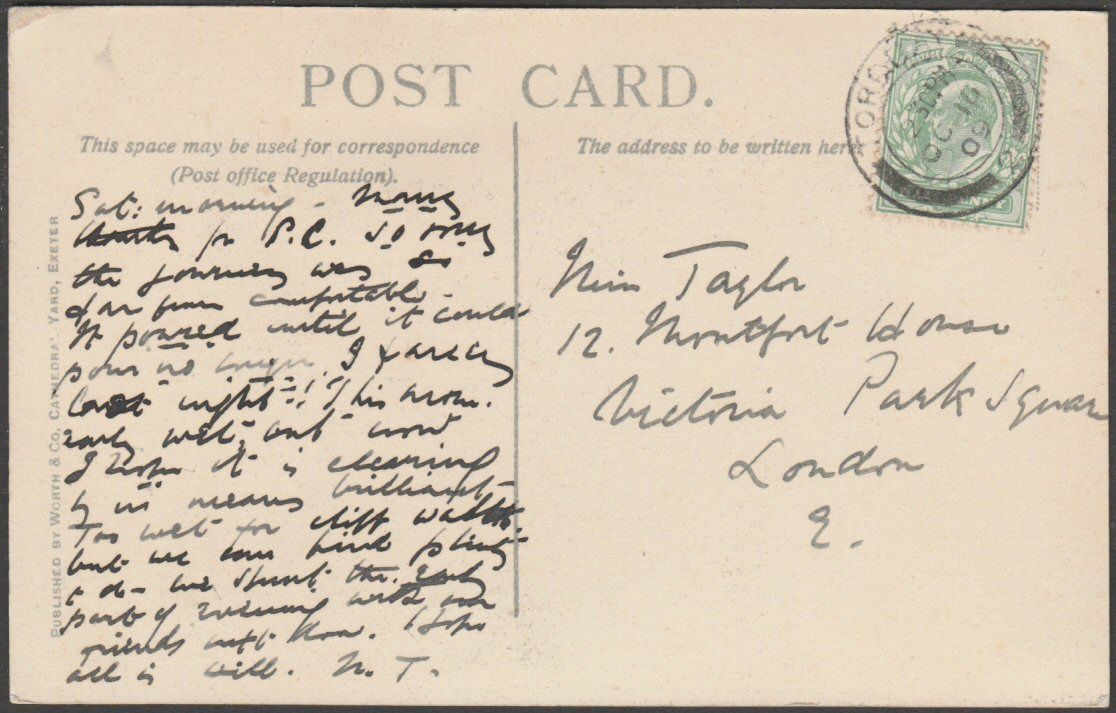 POST CARD.
This space may be used for correspondence
(Post office Regulation).
The address to be written here
PUBLISHED BY WORTH & CO, CATHEDRAL YARD, EXETER
Sat: morning - Many
thanks for P.C. So sorry
the journey was so
far from comfortable -
It poured until it could
pour no longer. I
last night!! This morn.
early wet, but now
I hope it is clearing
by no means brilliant
Too wet for cliff walks
but we can find plenty
to do - we spent the early
part of evening with our
friends next door. Hope
all is well. N. T.
Miss Taylor
12. Montfort House
Victoria Park Square
London
E.
TORQUAY
30 PM
OC 10
09
2